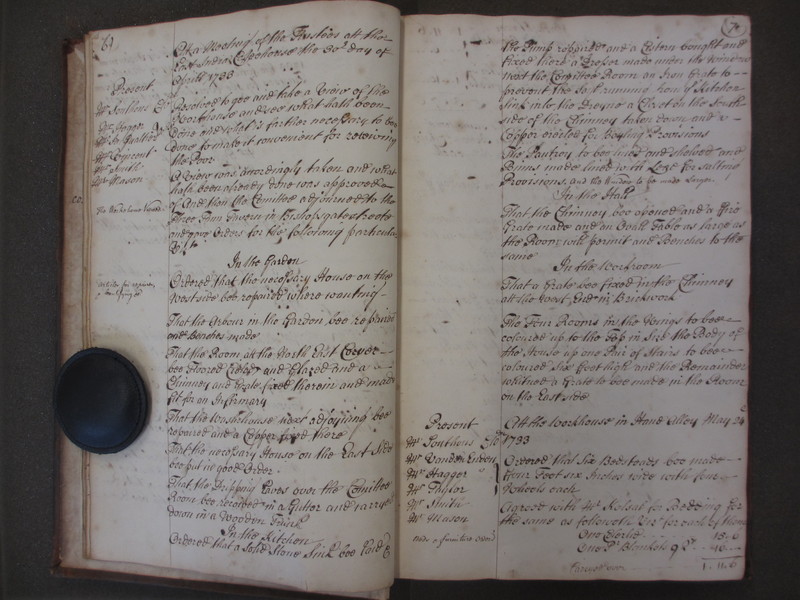 61
Att a Meeting of the Trustees att the
East India Coffeehouse the 30th day of
Aprill 1733
Present
Resolved to goe and take a View of the
Workhouse and see what hath been
done and what is farther necessary to be
done to make it convenient for receiving
the Poor
Mr Smith
Mr Mason
A View was accordingly taken and what
hath been already done was approved
of And then the Comittee adjourned to the
The Workhouse Viewed
Three Tunn Tavern in Bishopsgate street
and gave Orders for the following particulars
In the Garden
Ordered that the necessary House on the
West side bee repaired where wanting
That the Arbour in the Garden bee repaired
and Benches made
That the Room att the North East Corner
bee Floored Cieled and Glazed and a
Chimney and Grate fixed therein and made
fit for an Infirmary
That the Washhouse next adjoyning bee
repaired and a Copper fixed there
That the necessary House on the East Side
bee put in good Order
That the Dripping Eaves over the Comittee
Room bee received in a Gutter and carryed
down in a Wooden Trunk
In the Kitchen
Ordered that a Solid Stone Sink bee laid &
7
the Pump repaired and a Cistern bought and
fixed there a Dresser made under the Window
next the Comittee Room an Iron Grate to
prevent the running from the Kitchen
sink into the Dreyn a Closet on the South
side of the Chimney taken down and a
Copper erected for boyling Provisions
The Pantrey to bee lined and shelved and
Binns made lined with for salting
Provisions, and the to be made larger
In the Hall
That the Chimney bee opened and a Fire
Grate made and an Ovall Table as large as
the Room will permit and Benches to the
same
In the Workroom
That a Grate bee fixed in the Chimney
att the West End in Brickwork
The Four Rooms in the Wings to bee
coloured up to the Top in Size the Body of
the House up one Pair of Stairs to bee
coloured Six Foot high and the Remainder
whitned a Grate to bee made in the Room
on the East side
Present
Att the Workhouse in Hand Alley May 24
1733
Mr Hagger
Mr Taylor
Mr Smith
Mr Mason
Ordered that Six Bedsteads bee made
Four Foot six Inches wide with four
Wheels each
Agreed with Mr for Bedding for
the same as followeth Vizt for each of them
One 15..6
One pr Blankets 9 qr
1. 11. 6